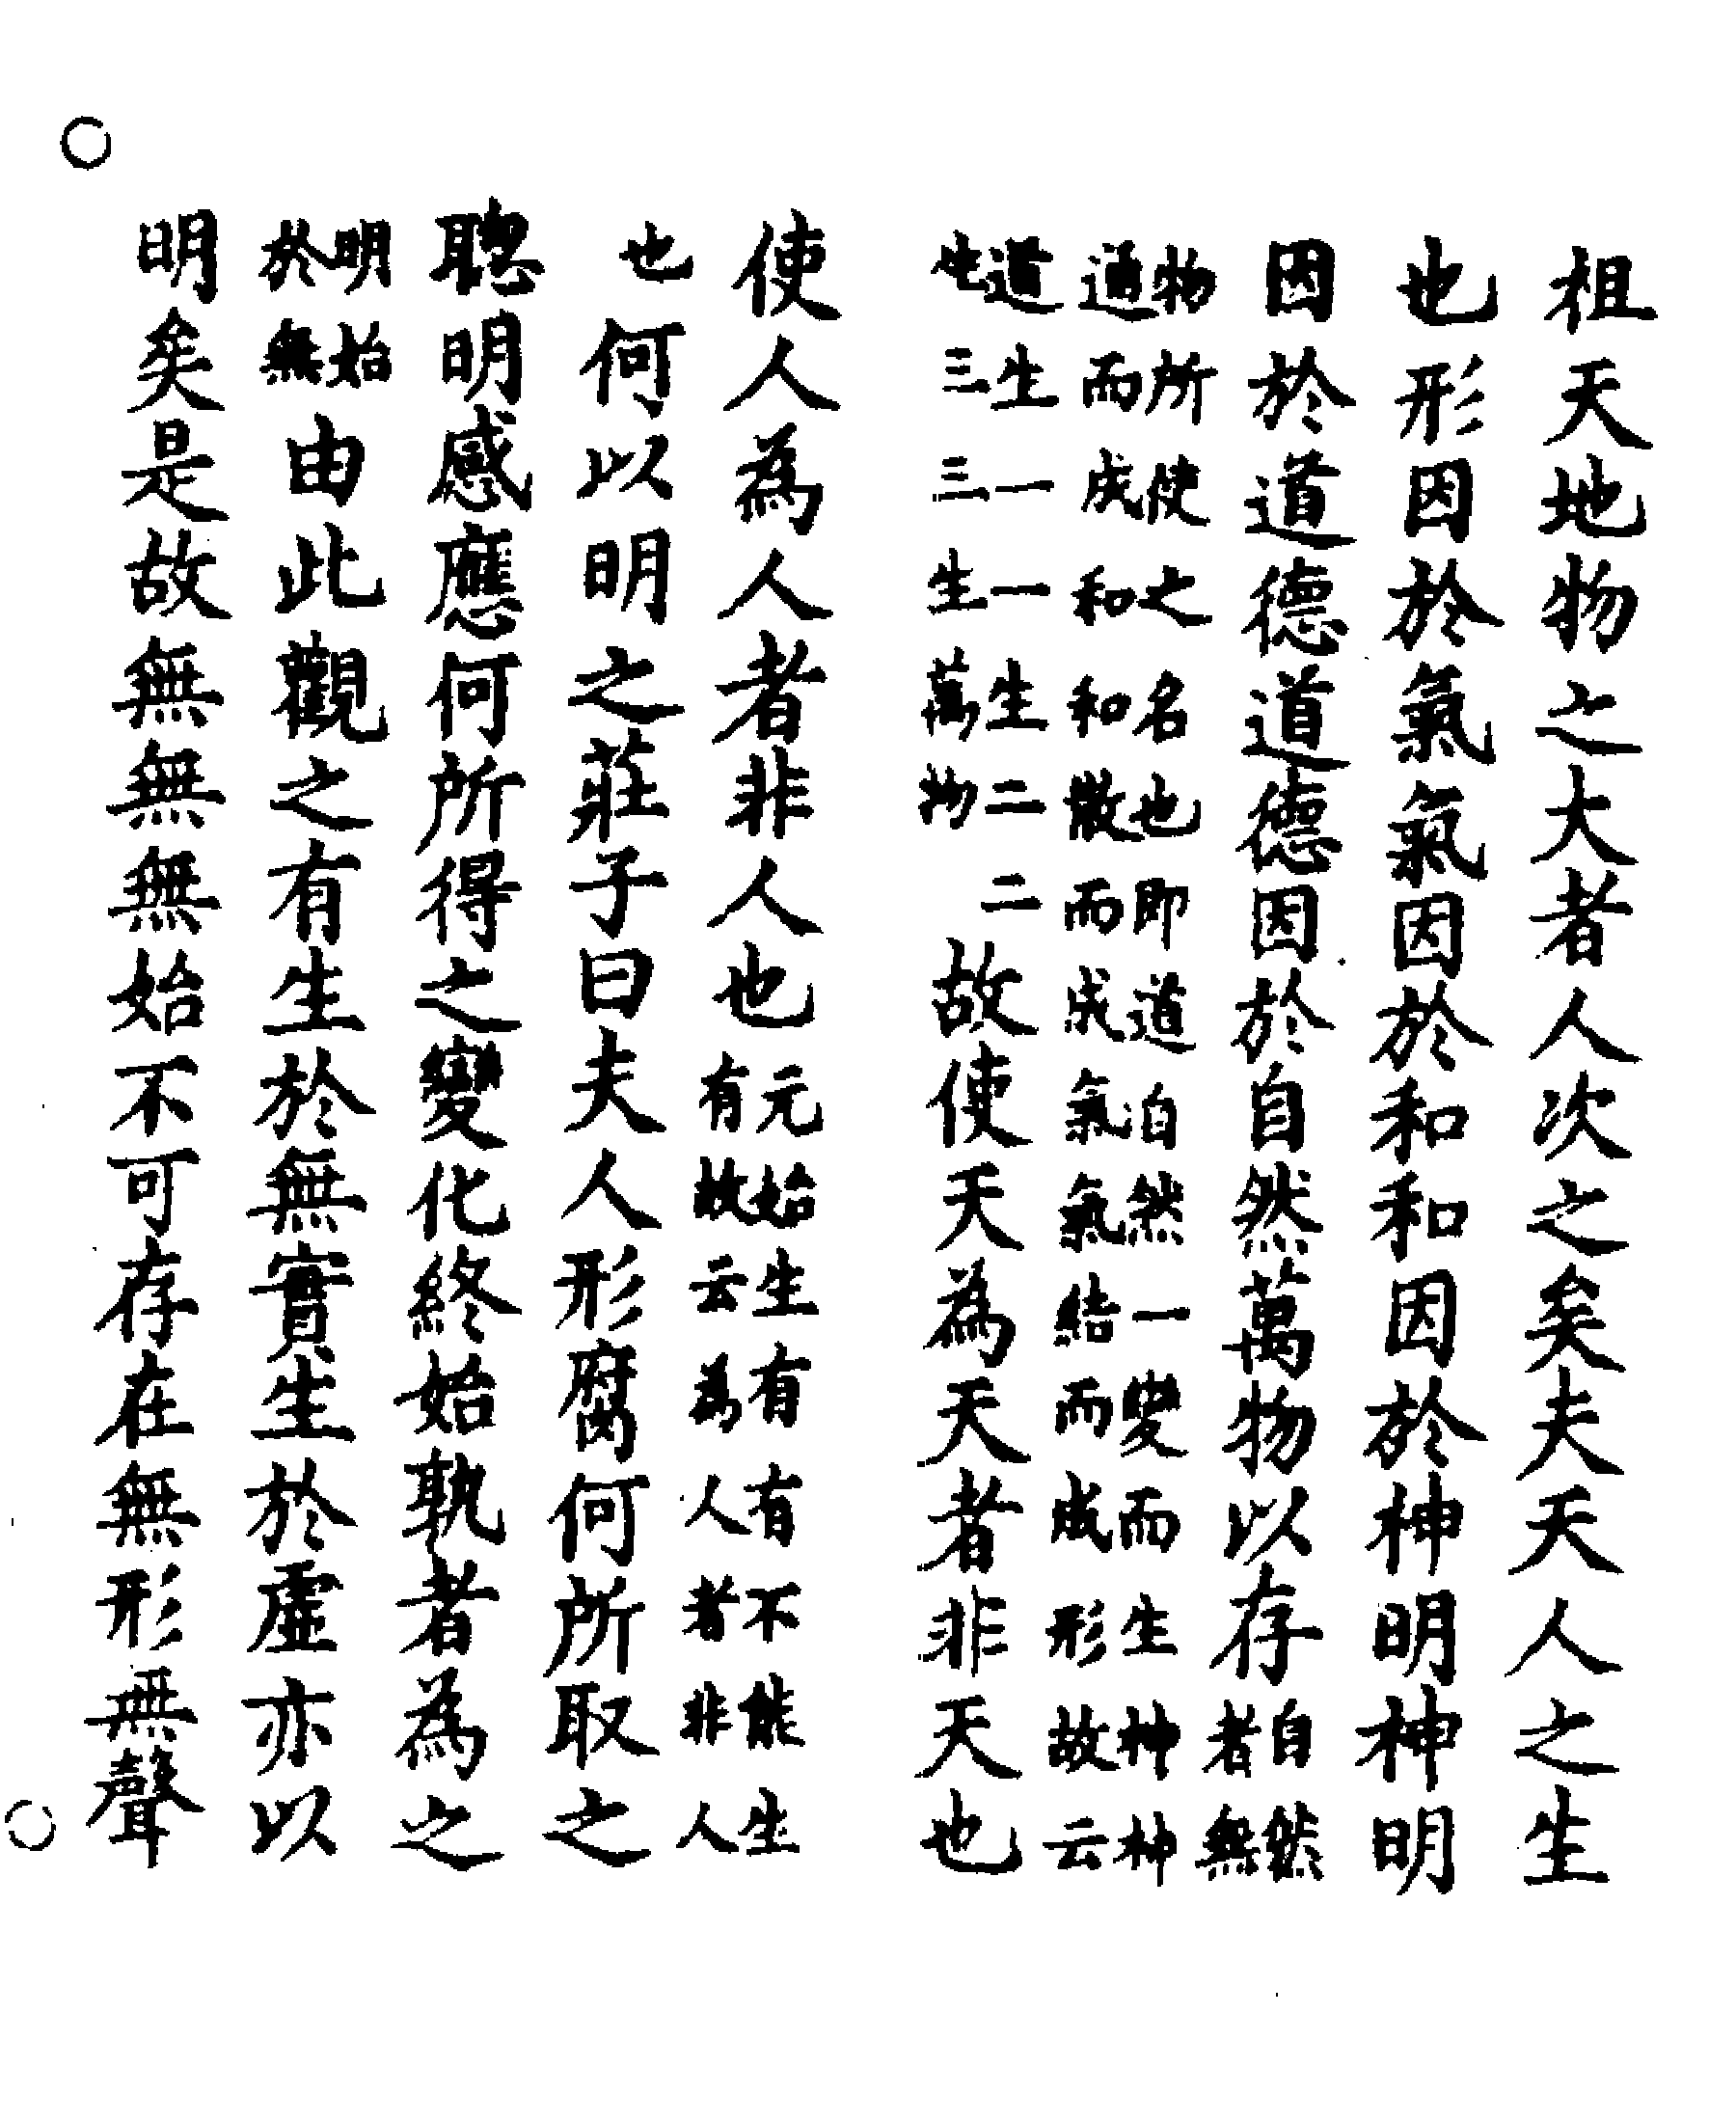 祖天地物之大者人次之矣夫天人之生
也形因於氣氣因於和和因於神明神明
因於道德道德因於自然萬物以存
自然
者無
物所使之名也即道自然一變而生神神
通而成和和散而成氣氣結而成形故云
道生一一生二二
生三三生萬物
故使天為天者非天也
使人為人者非人也
元始生有有不能生
有故云為人者非人
也
何以明之莊子曰夫人形腐何所取之
聰明感應何所得之變化終始孰者為之
明始
於無
由此觀之有生於無實生於虛亦以
明矣是故無無無始不可存在無形無聲